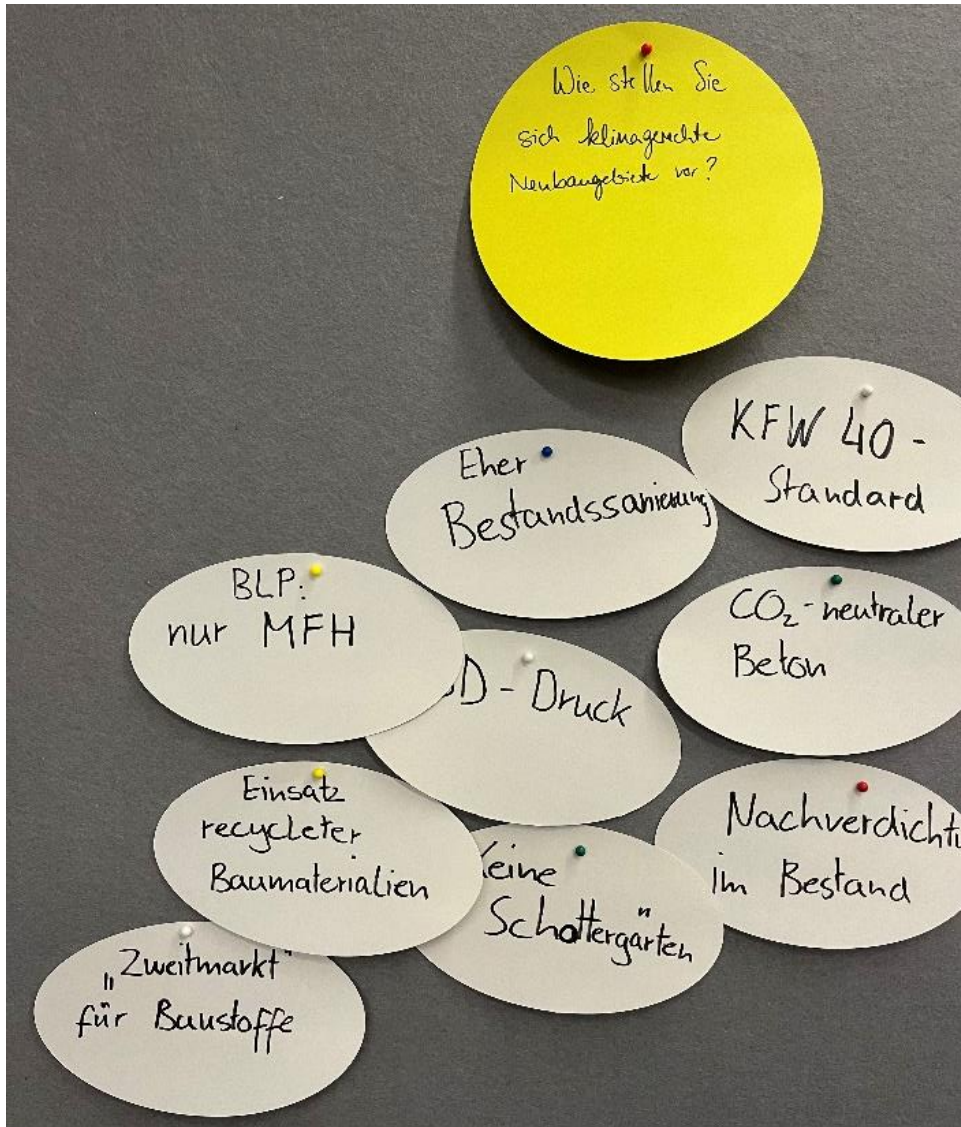 Wie stellen Sie
sich klimagerechte
Neubaugebiete vor?
KFW 40-
Standard
Eher
Bestandssanierung
BLP:
nur MFH
CO₂-neutraler
Beton
D-Druck
Einsatz
recycleter
Baumaterialien
Nachverdichtu
im Bestand
eine
Schottergärten
„Zweitmarkt"
für Baustoffe